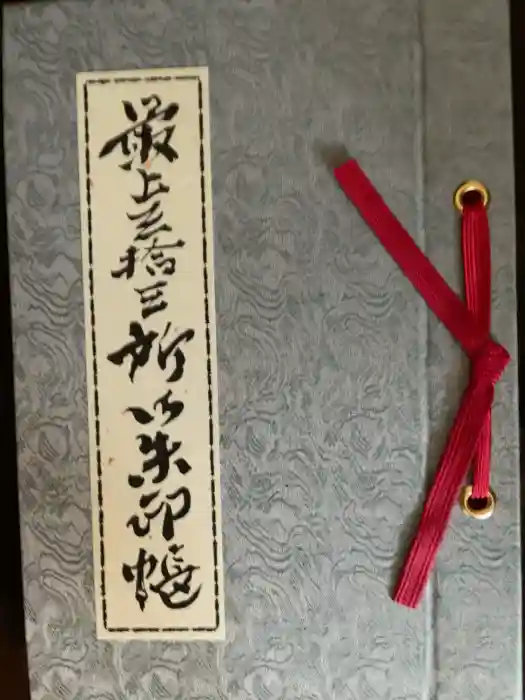 最上三拾三所御朱印帳